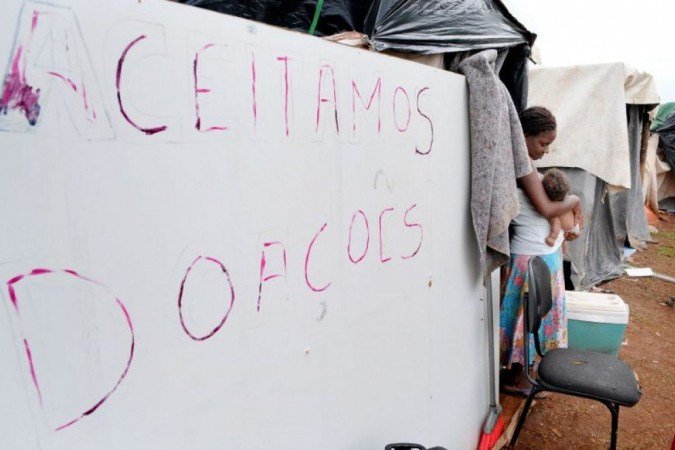 ACEITAMOS
DOAÇÕES